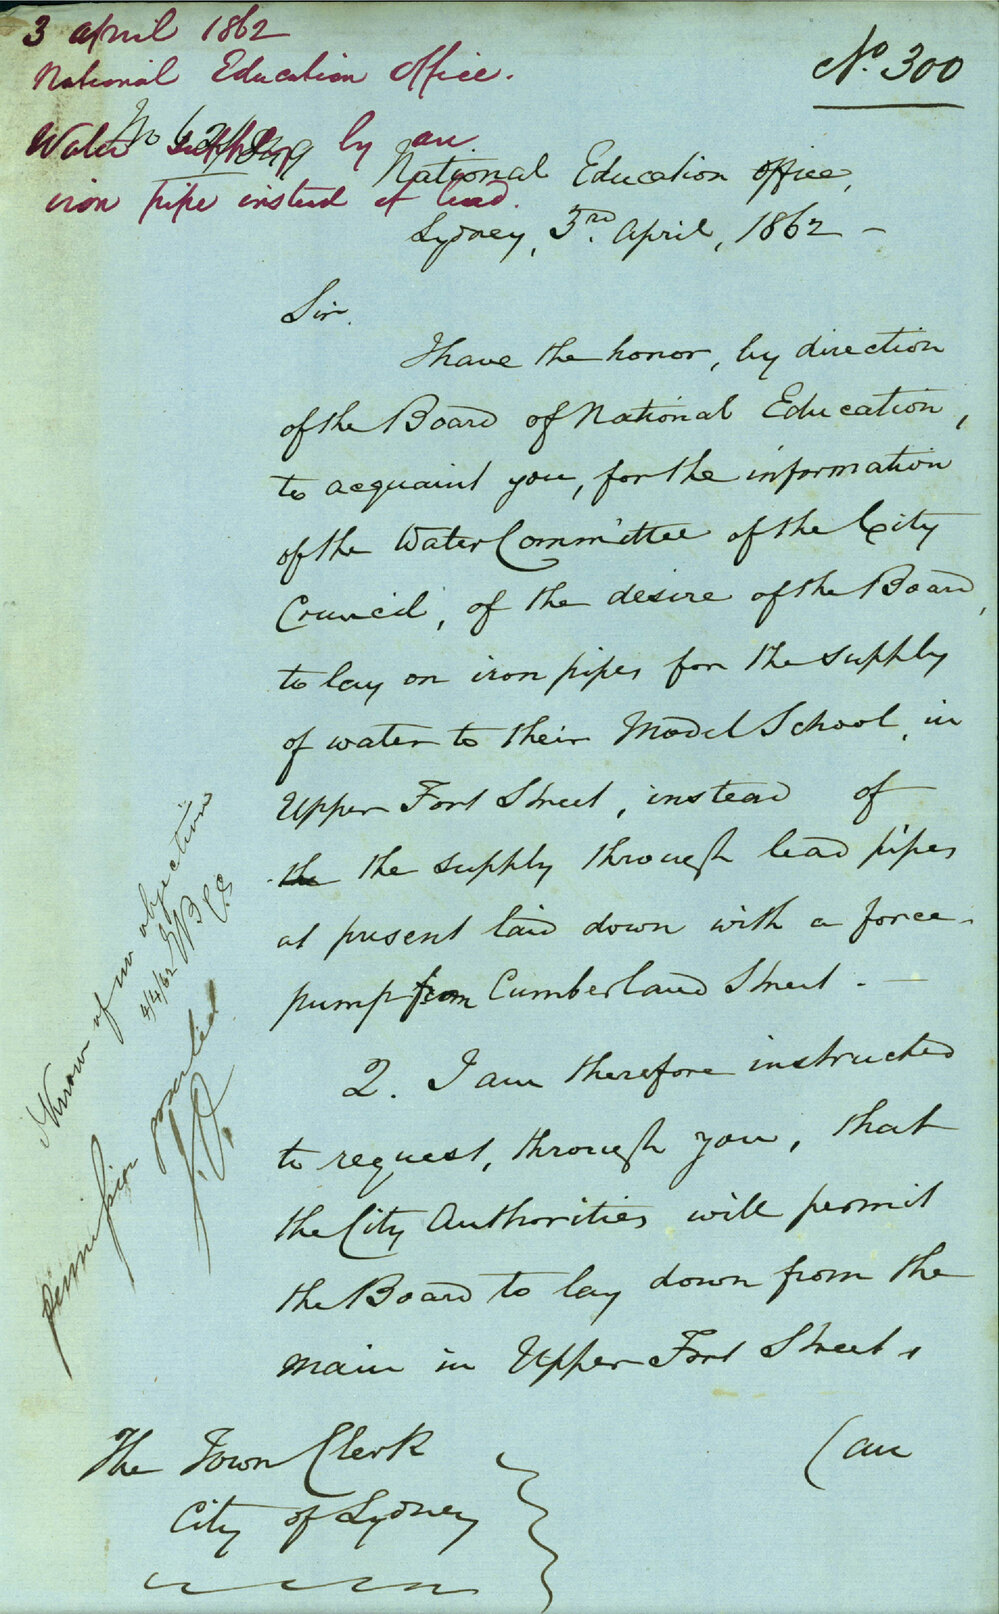 3 April 1862
National Education Office.
Water supply by an
iron pipe instead of lead.
No. 300
No 62/849
National Education Office,
Sydney, 3rd. April, 1862 -
Sir,
I have the honor, by direction
of the Board of National Education,
to acquaint you, for the information
of the Water Committee of the City
Council, of the desire of the Board,
to lay on iron pipes for the supply
of water to their Model School, in
Upper Fort Street, instead of
the the supply through lead pipes
at present laid down with a force-
pump from Cumberland Street. -
2. I am therefore instructed
to request, through you, that
the City Authorities will permit
the Board to lay down from the
main in Upper Fort Street,
(an
The Town Clerk
City of Sydney
Know of no objection
4/4/62 EB CE
permission granted